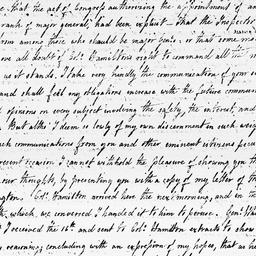 that the act of Congress authorizing the appointment of an
rank of major general, had been explicit – that the Inspector
from among those who should be major genls. or that some
all doubt of Col: Hamiltons right to command all the
as it stands. I take very kindly the communication of your
and shall feel my obligations increase with the future commun
opinions on every subject involving the safety, the interest, and
But altho' I deem so lowly of my own discernment in such weigh
communications from you and other eminent citizens
present occasion I cannot withhold the pleasure of showing you th
our thoughts, by presenting you with a copy of my letter of th
ington. Col. Hamilton arrived here the next morning, and in the
which, we conversed I handed it to him to peruse. Genl.
I received the 16th and sent to Col. Hamilton extracts to show
reasoning, concluding with an expression of my hopes, that as he